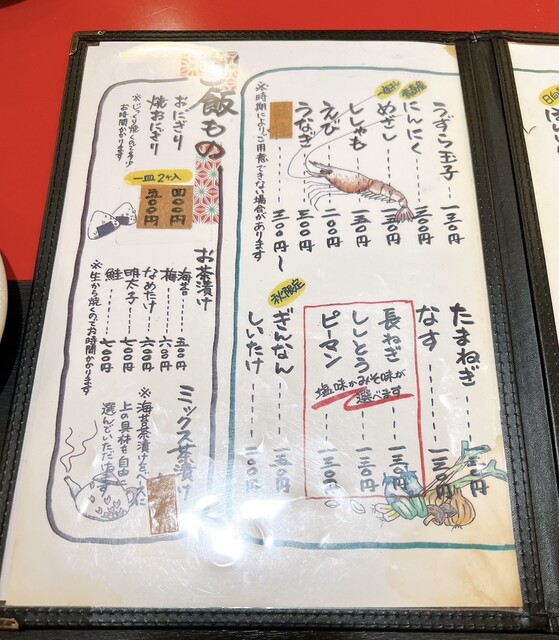 うずら玉子 一三〇円
にんにく 三〇〇円
一皿
青森産
めざし 一五〇円
ししゃも 一五〇円
えび 二〇〇円
うなぎ 五〇〇円
三〇〇円〜
※時期によりご用意できない場合があります
たまねぎ
なす 一三〇円
長ねぎ 一五〇円
ししとう 一五〇円
ピーマン 一三〇円
塩味かみそ味が
選べます
秋限定
ぎんなん 一五〇円
しいたけ 一〇〇円
ご飯もの
おにぎり 四〇〇円
焼おにぎり 五〇〇円
一皿2ヶ入
※じっくり焼くので少々
お時間かかります
お茶漬け
海苔 五〇〇円
梅 六〇〇円
なめたけ 六〇〇円
明太子 七〇〇円
鮭 七〇〇円
※生から焼くのでお時間かかります
ミックス茶漬け
※海苔茶漬けをベースに
上の具材を自由に
選んでいただけます